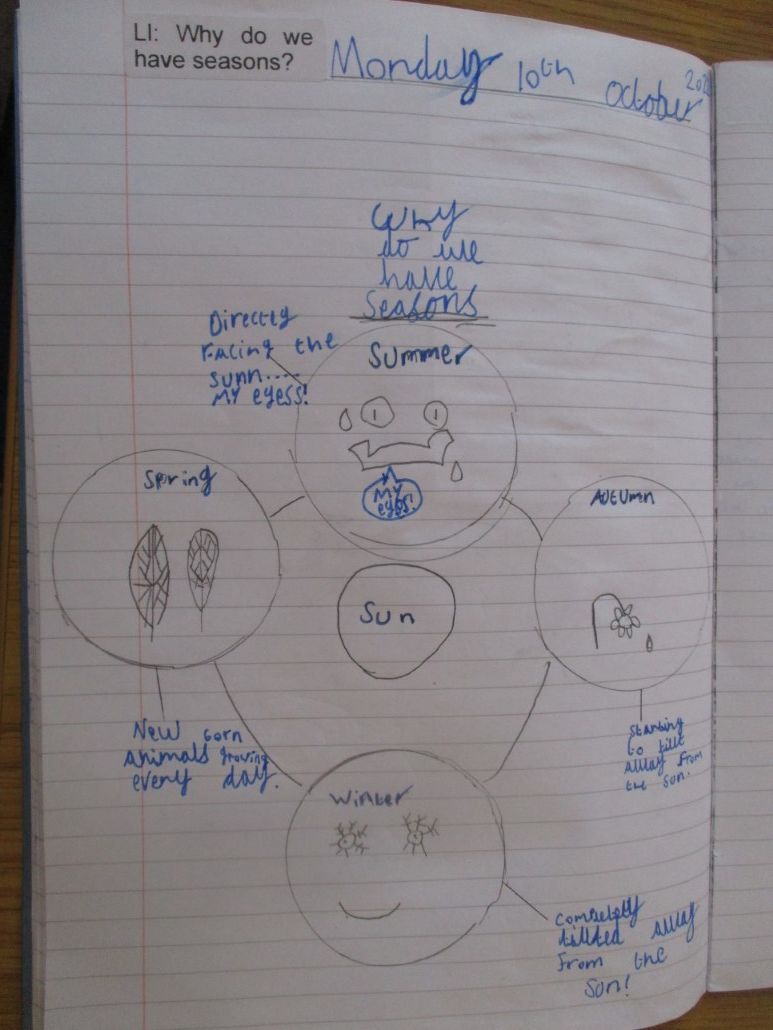 LI: Why do we
have seasons?
Monday 10th October
Why
do we
have
Seasons
Directly
Facing the
sunn....
My eyess!
Summer
My
eyes!
Spring
Autumn
Sun
New born
animals growing
every day.
Starting
to tillt
away from
the sun.
Winter
completely
tillted away
from the
Sun!